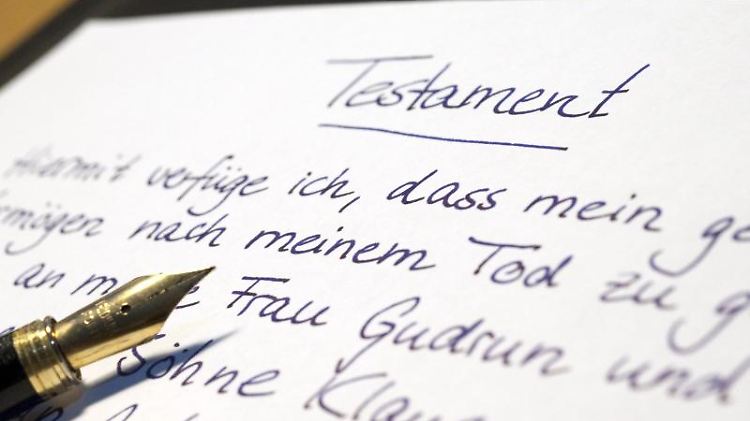 Testament
Hiermit verfüge ich, dass mein ge
rmögen nach meinem Tod zu g
an m e Frau Gudrun und
Söhne Klau